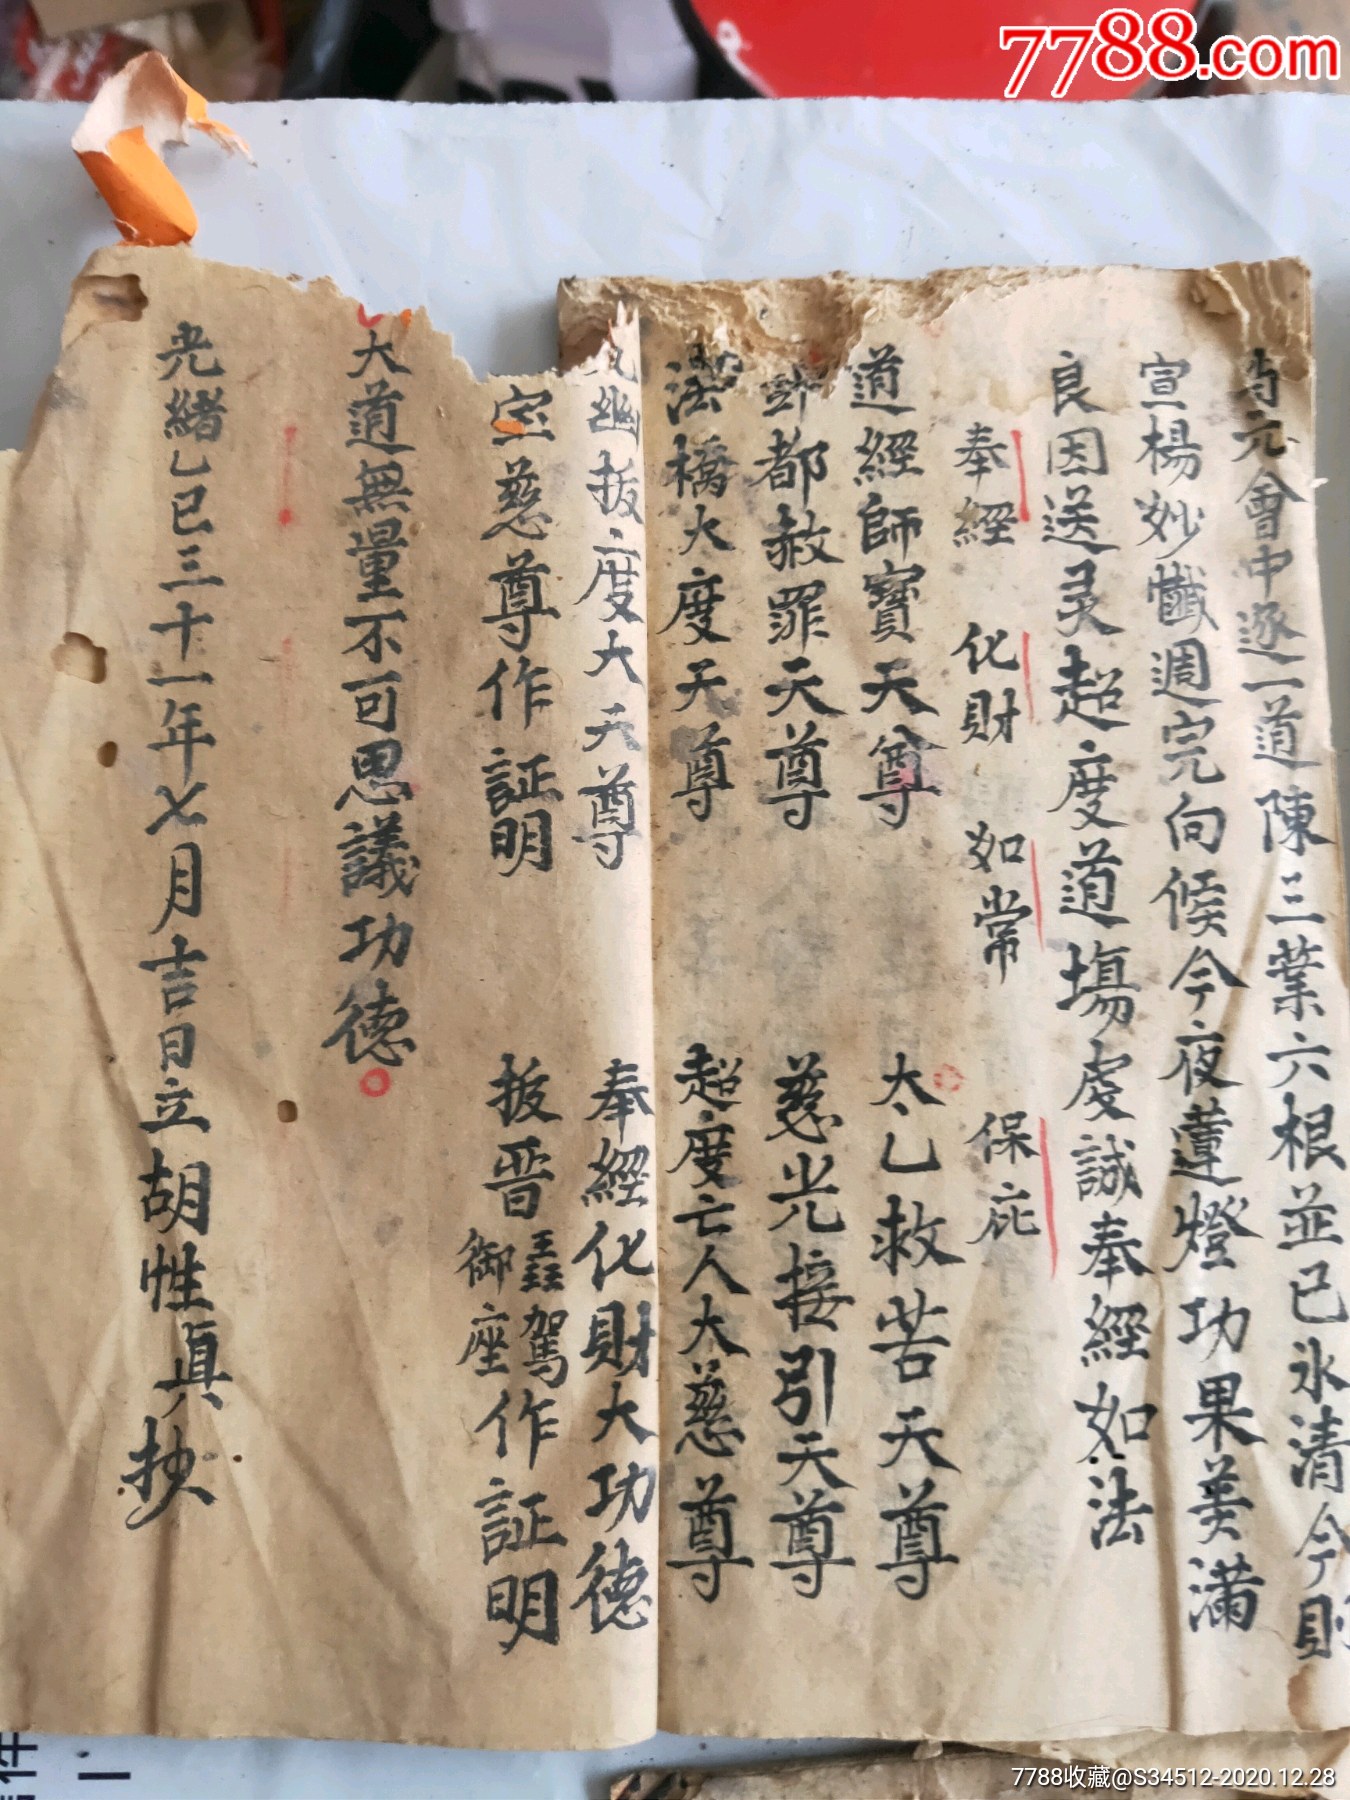 7788.com
元會中逐一道陳三業六根並已氷清今則
宣楊妙懺週完向候今夜蓮燈功果美滿
良因送灵超度道塲處誠奉經如法
奉經 化財 如常 保庇
道經師寶天尊 太乙救苦天尊
酆都赦罪天尊 慈光接引天尊
法橋大度天尊 超度亡人大慈尊
九幽拔度大天尊 奉經化財大功德
宝慈尊作証明 拔晋 駕 御座 作証明
大道無量不可思議功德
光緒乙巳三十一年七月吉日立胡性真抄
件
7788收藏@S34512-2020.12.28